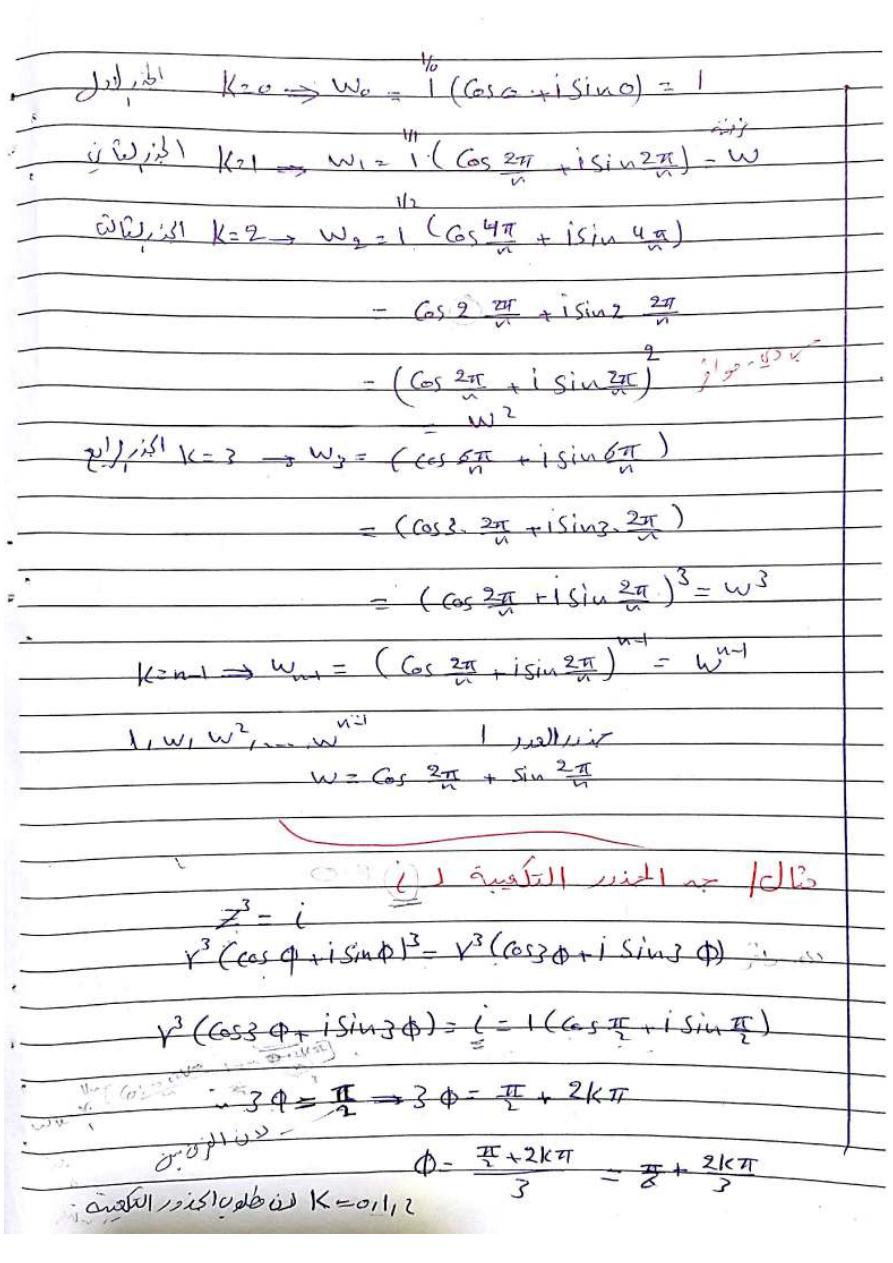 الجذر الاول K=0 ⇒ W₀ = 1^{1/0} (Cos0 + i Sin0) = 1
الجذر الثاني K=1 → W₁ = 1^{1/1} (Cos 2π/n + i sin 2π/n) = W
الجذر الثالث K=2 → W₂ = 1^{1/2} (Cos 4π/n + i sin 4π/n)
= Cos 2 2π/n + i Sin 2 2π/n
= (Cos 2π/n + i Sin 2π/n)²
= W²
الجذر الرابع K=3 → W₃ = (cos 6π/n + i sin 6π/n)
= (Cos 3. 2π/n + i Sin 3. 2π/n)
= (Cos 2π/n + i Sin 2π/n)³ = W³
K=n-1 ⇒ W_{n-1} = (Cos 2π/n + i sin 2π/n)^{n-1} = W^{n-1}
1, W, W², .... W^{n-1} جذور العدد 1
W = Cos 2π/n + Sin 2π/n
مثال/ جد الجذور التكعيبة لـ (i)
Z³ = i
r³ (cos φ + i Sin φ)³ = r³ (Cos3φ + i Sin3φ)
r³ (Cos3φ + i Sin3φ) = i = 1 (Cos π/2 + i Sin π/2)
∴ 3φ = π/2 → 3φ = π/2 + 2kπ
لان الفرق بين
φ = (π/2 + 2kπ)/3 = π/6 + 2kπ/3
K = 0, 1, 2 لان طلوب الجذور التكعيبة